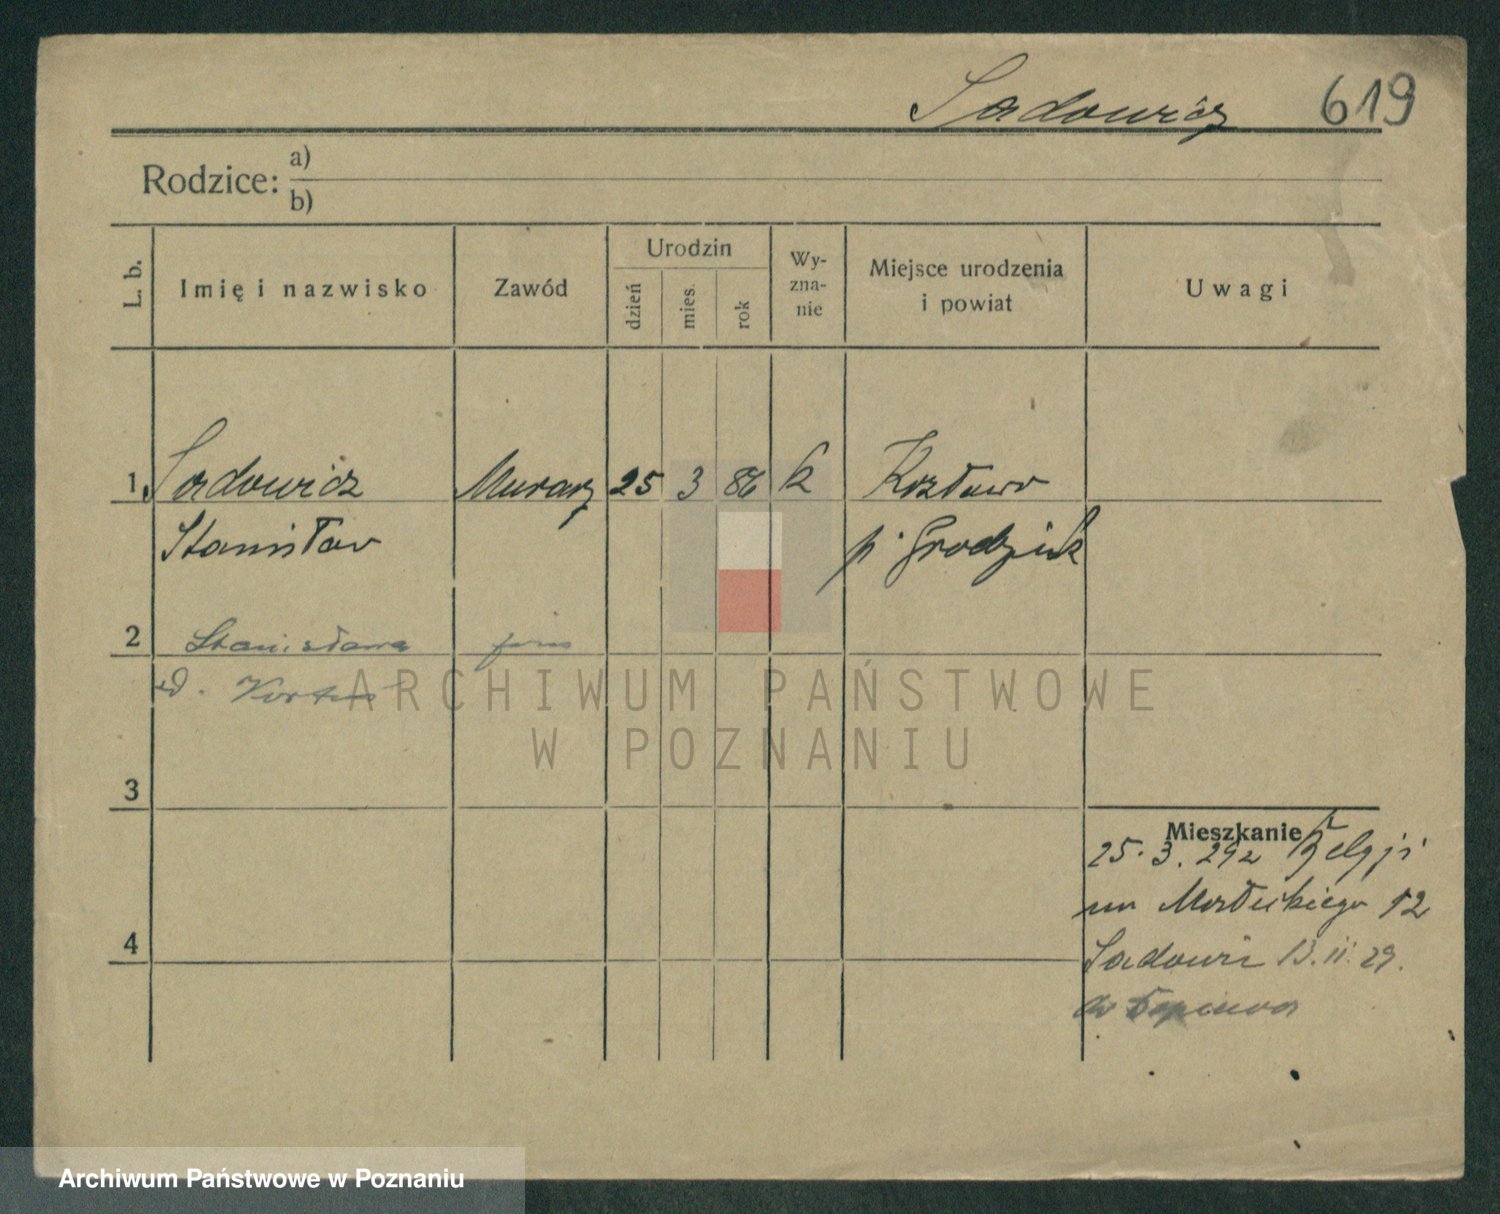 Sadowicz 619
Rodzice: a)
b)
L. b. Imię i nazwisko Zawód Urodzin dzień mies. rok Wy-zna-nie Miejsce urodzenia i powiat Uwagi
1 Sadowicz Murarz 25 3 86 k
Stanisław p. Grodzisk
2 Stanisława
ARCHIWUM PAŃSTWOWE
W POZNANIU
3
Mieszkanie
25. 3. 29 z Belgji
12
4
13. 11. 29.
Archiwum Państwowe w Poznaniu